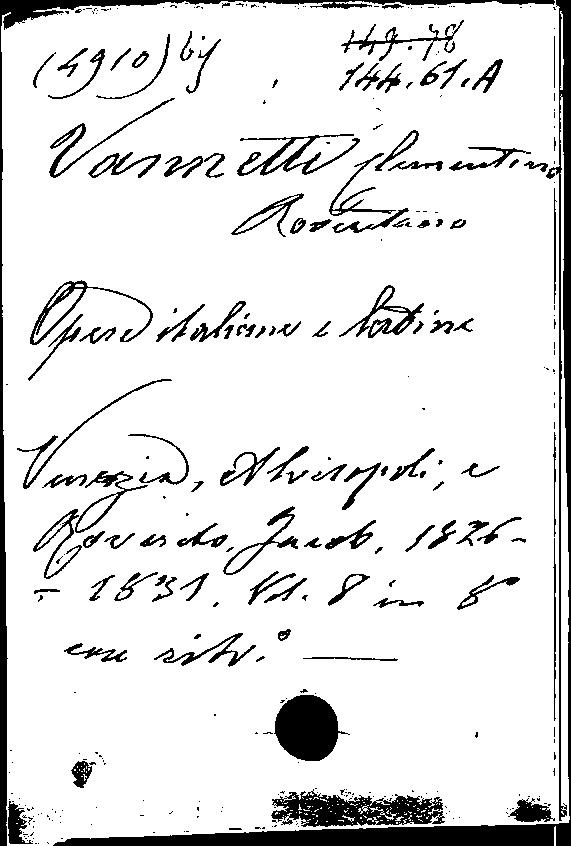 (4910) by
149.78
144.61.A
Vannetti Clementino
Roveretano
Opere italiane e latine
Venezia, Alvisopoli, e
Rovereto, Jacob, 1826-
- 1831. Vol. 8 in 8°
con ritr.°